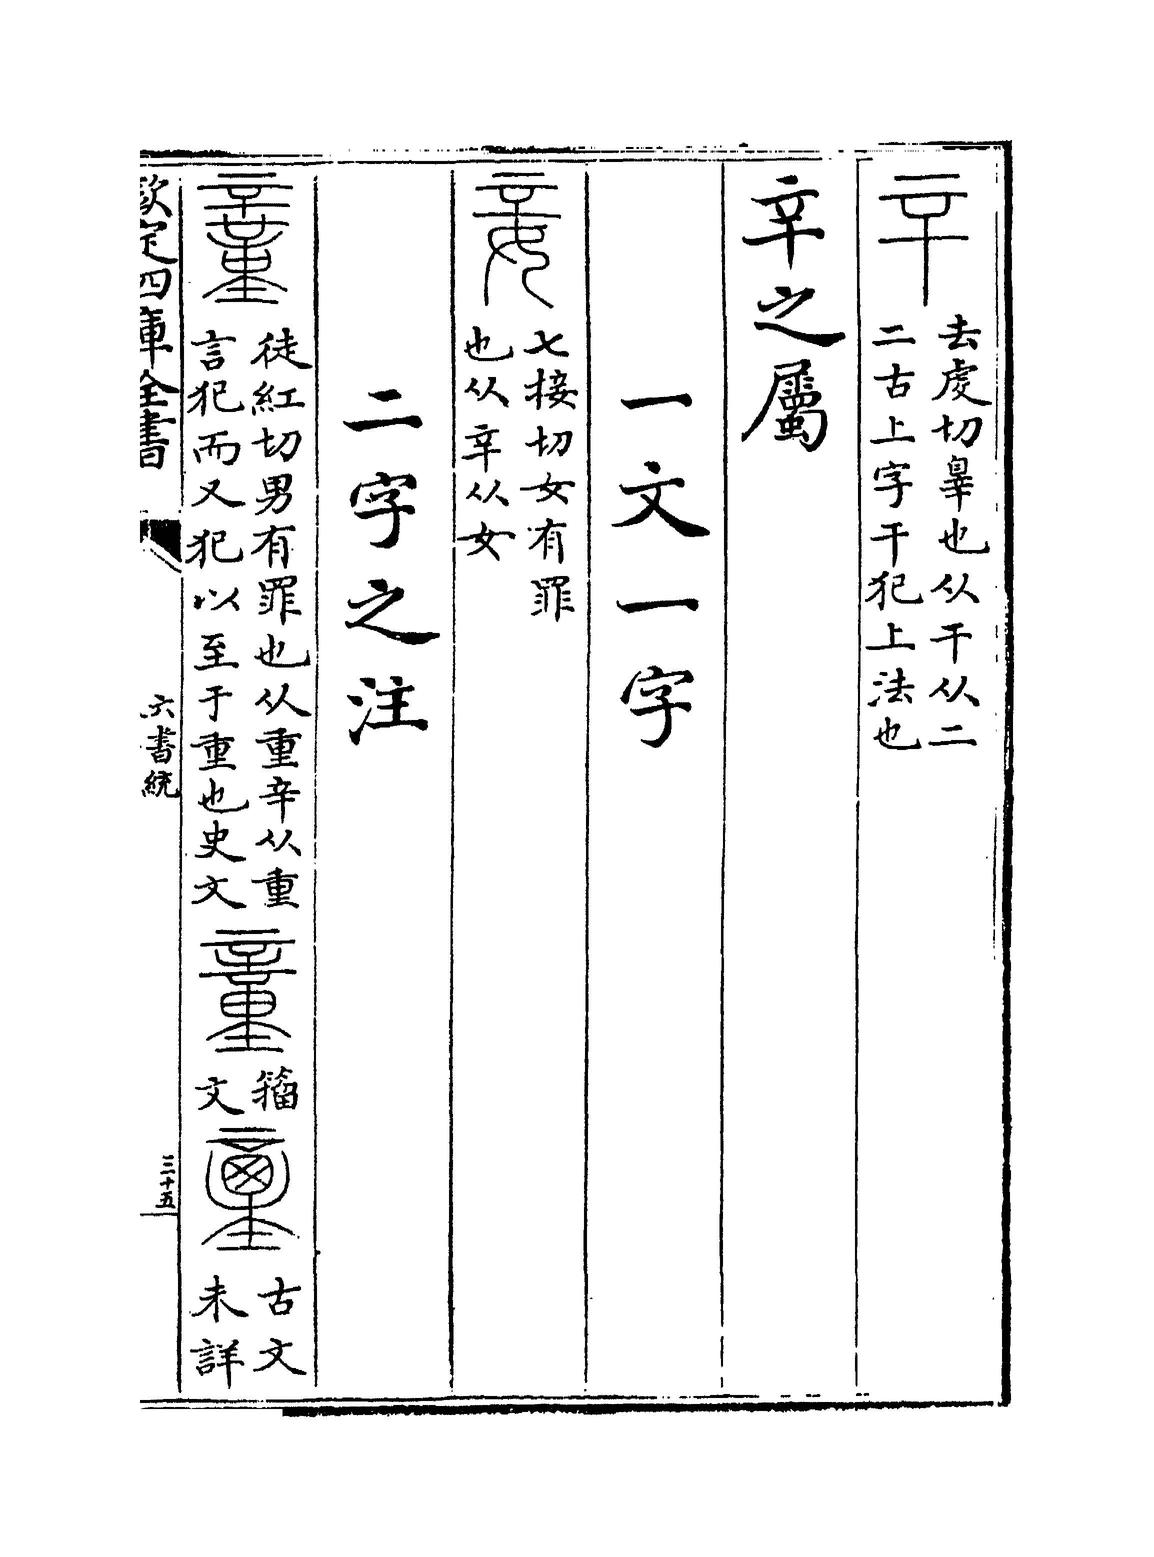 去䖍切辠也从干从二
二古上字干犯上法也
辛之屬
一文一字
七接切女有罪
也从辛从女
二字之注
徒紅切男有罪也从重辛从重
言犯而又犯以至于重也史文
籀
文
古文
未詳
欽定四庫全書
六書統
三十五